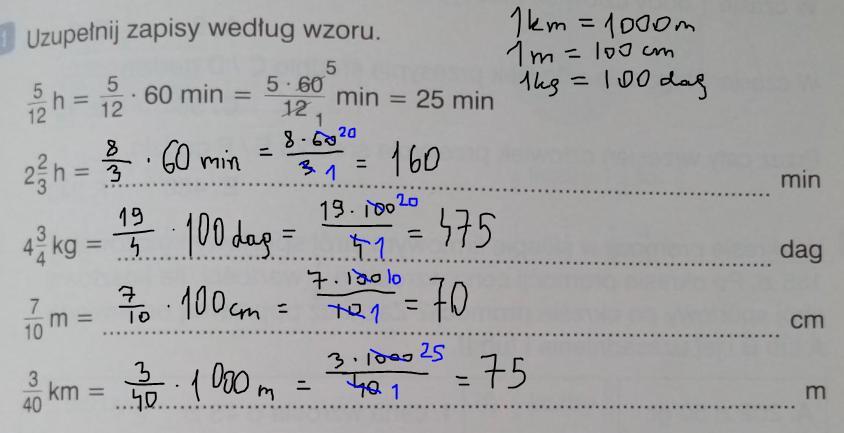 1 Uzupełnij zapisy według wzoru.
1km = 1000m
1m = 100 cm
1kg = 100 dag
5/12 h = 5/12 · 60 min = 5 · 60 5 / 12 1 min = 25 min
2 2/3 h = 8/3 · 60 min = 8 · 60 20 / 3 1 = 160 min
4 3/4 kg = 19/4 · 100 dag = 19 · 100 20 / 4 1 = 475 dag
7/10 m = 7/10 · 100cm = 7 · 100 10 / 10 1 = 70 cm
3/40 km = 3/40 · 1000 m = 3 · 1000 25 / 40 1 = 75 m